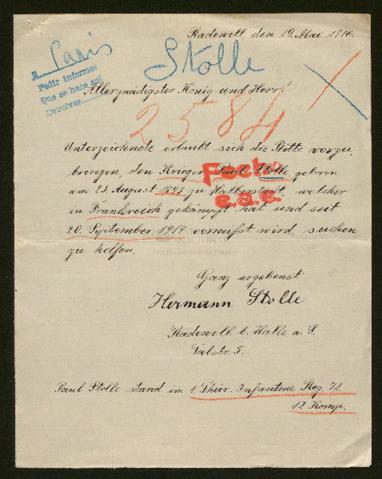 Radewell, den 19. Mai 1916.
a Paris
Pedir informes
Que se hace así
Devolver
Stolle
Allergnädigster König und Herr!
2584
Unterzeichnete erlaubt sich die Bitte vorzu
bringen, den Krieger Paul Stolle geboren
am 23. August 1895 zu Halberstadt, welcher
in Frankreich gekämpft hat und seit
20. September 1914 vermißt wird, suchen
zu helfen.
Fecho
Ganz ergebenst
Hermann Stolle
Radewell b. Halle a. S.
Paul Stolle stand im 4. Thür. Infanterie Reg. 72
12. Komp.